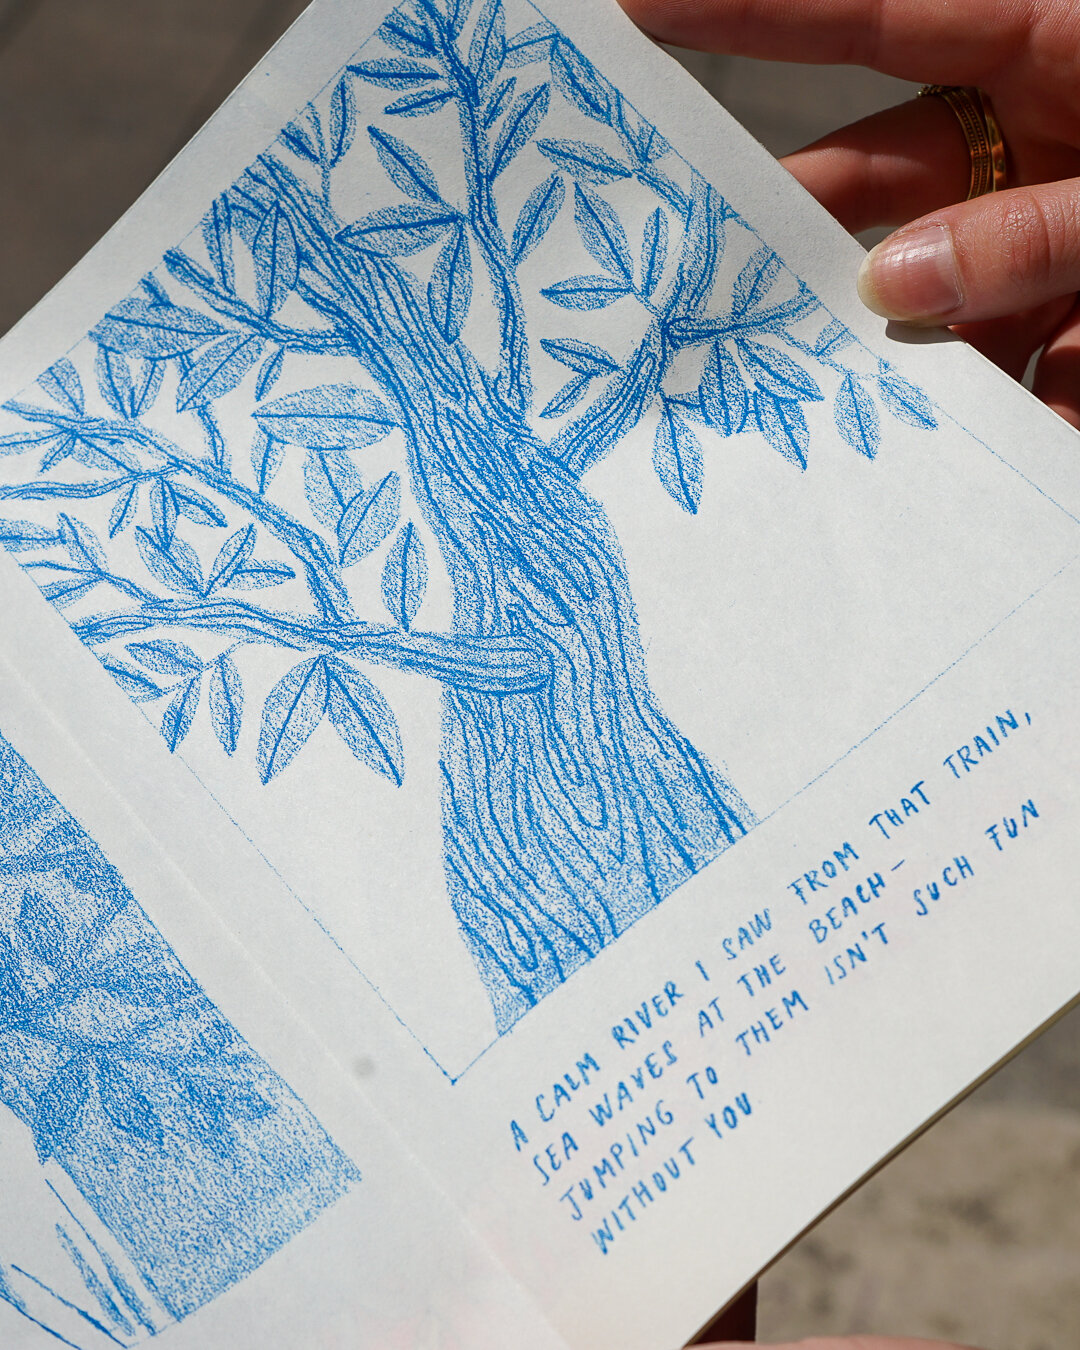 A CALM RIVER I SAW FROM THAT TRAIN,
SEA WAVES AT THE BEACH—
JUMPING TO THEM ISN'T SUCH FUN
WITHOUT YOU